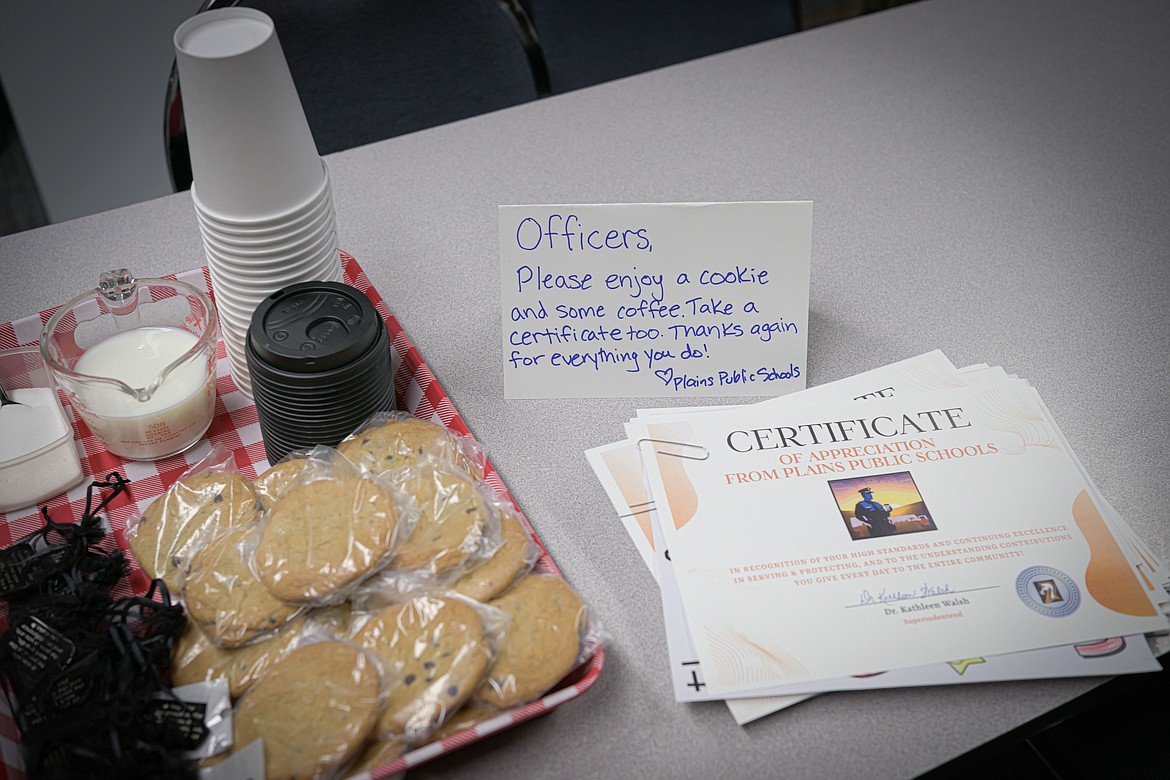 Officers,
Please enjoy a cookie
and some coffee. Take a
certificate too. Thanks again
for everything you do!
♡Plains Public Schools
CERTIFICATE
OF APPRECIATION
FROM PLAINS PUBLIC SCHOOLS
IN RECOGNITION OF YOUR HIGH STANDARDS AND CONTINUING EXCELLENCE
IN SERVING & PROTECTING, AND TO THE UNDERSTANDING CONTRIBUTIONS
YOU GIVE EVERY DAY TO THE ENTIRE COMMUNITY!
Dr. Kathleen Walsh
Dr. Kathleen Walsh
Superintendent